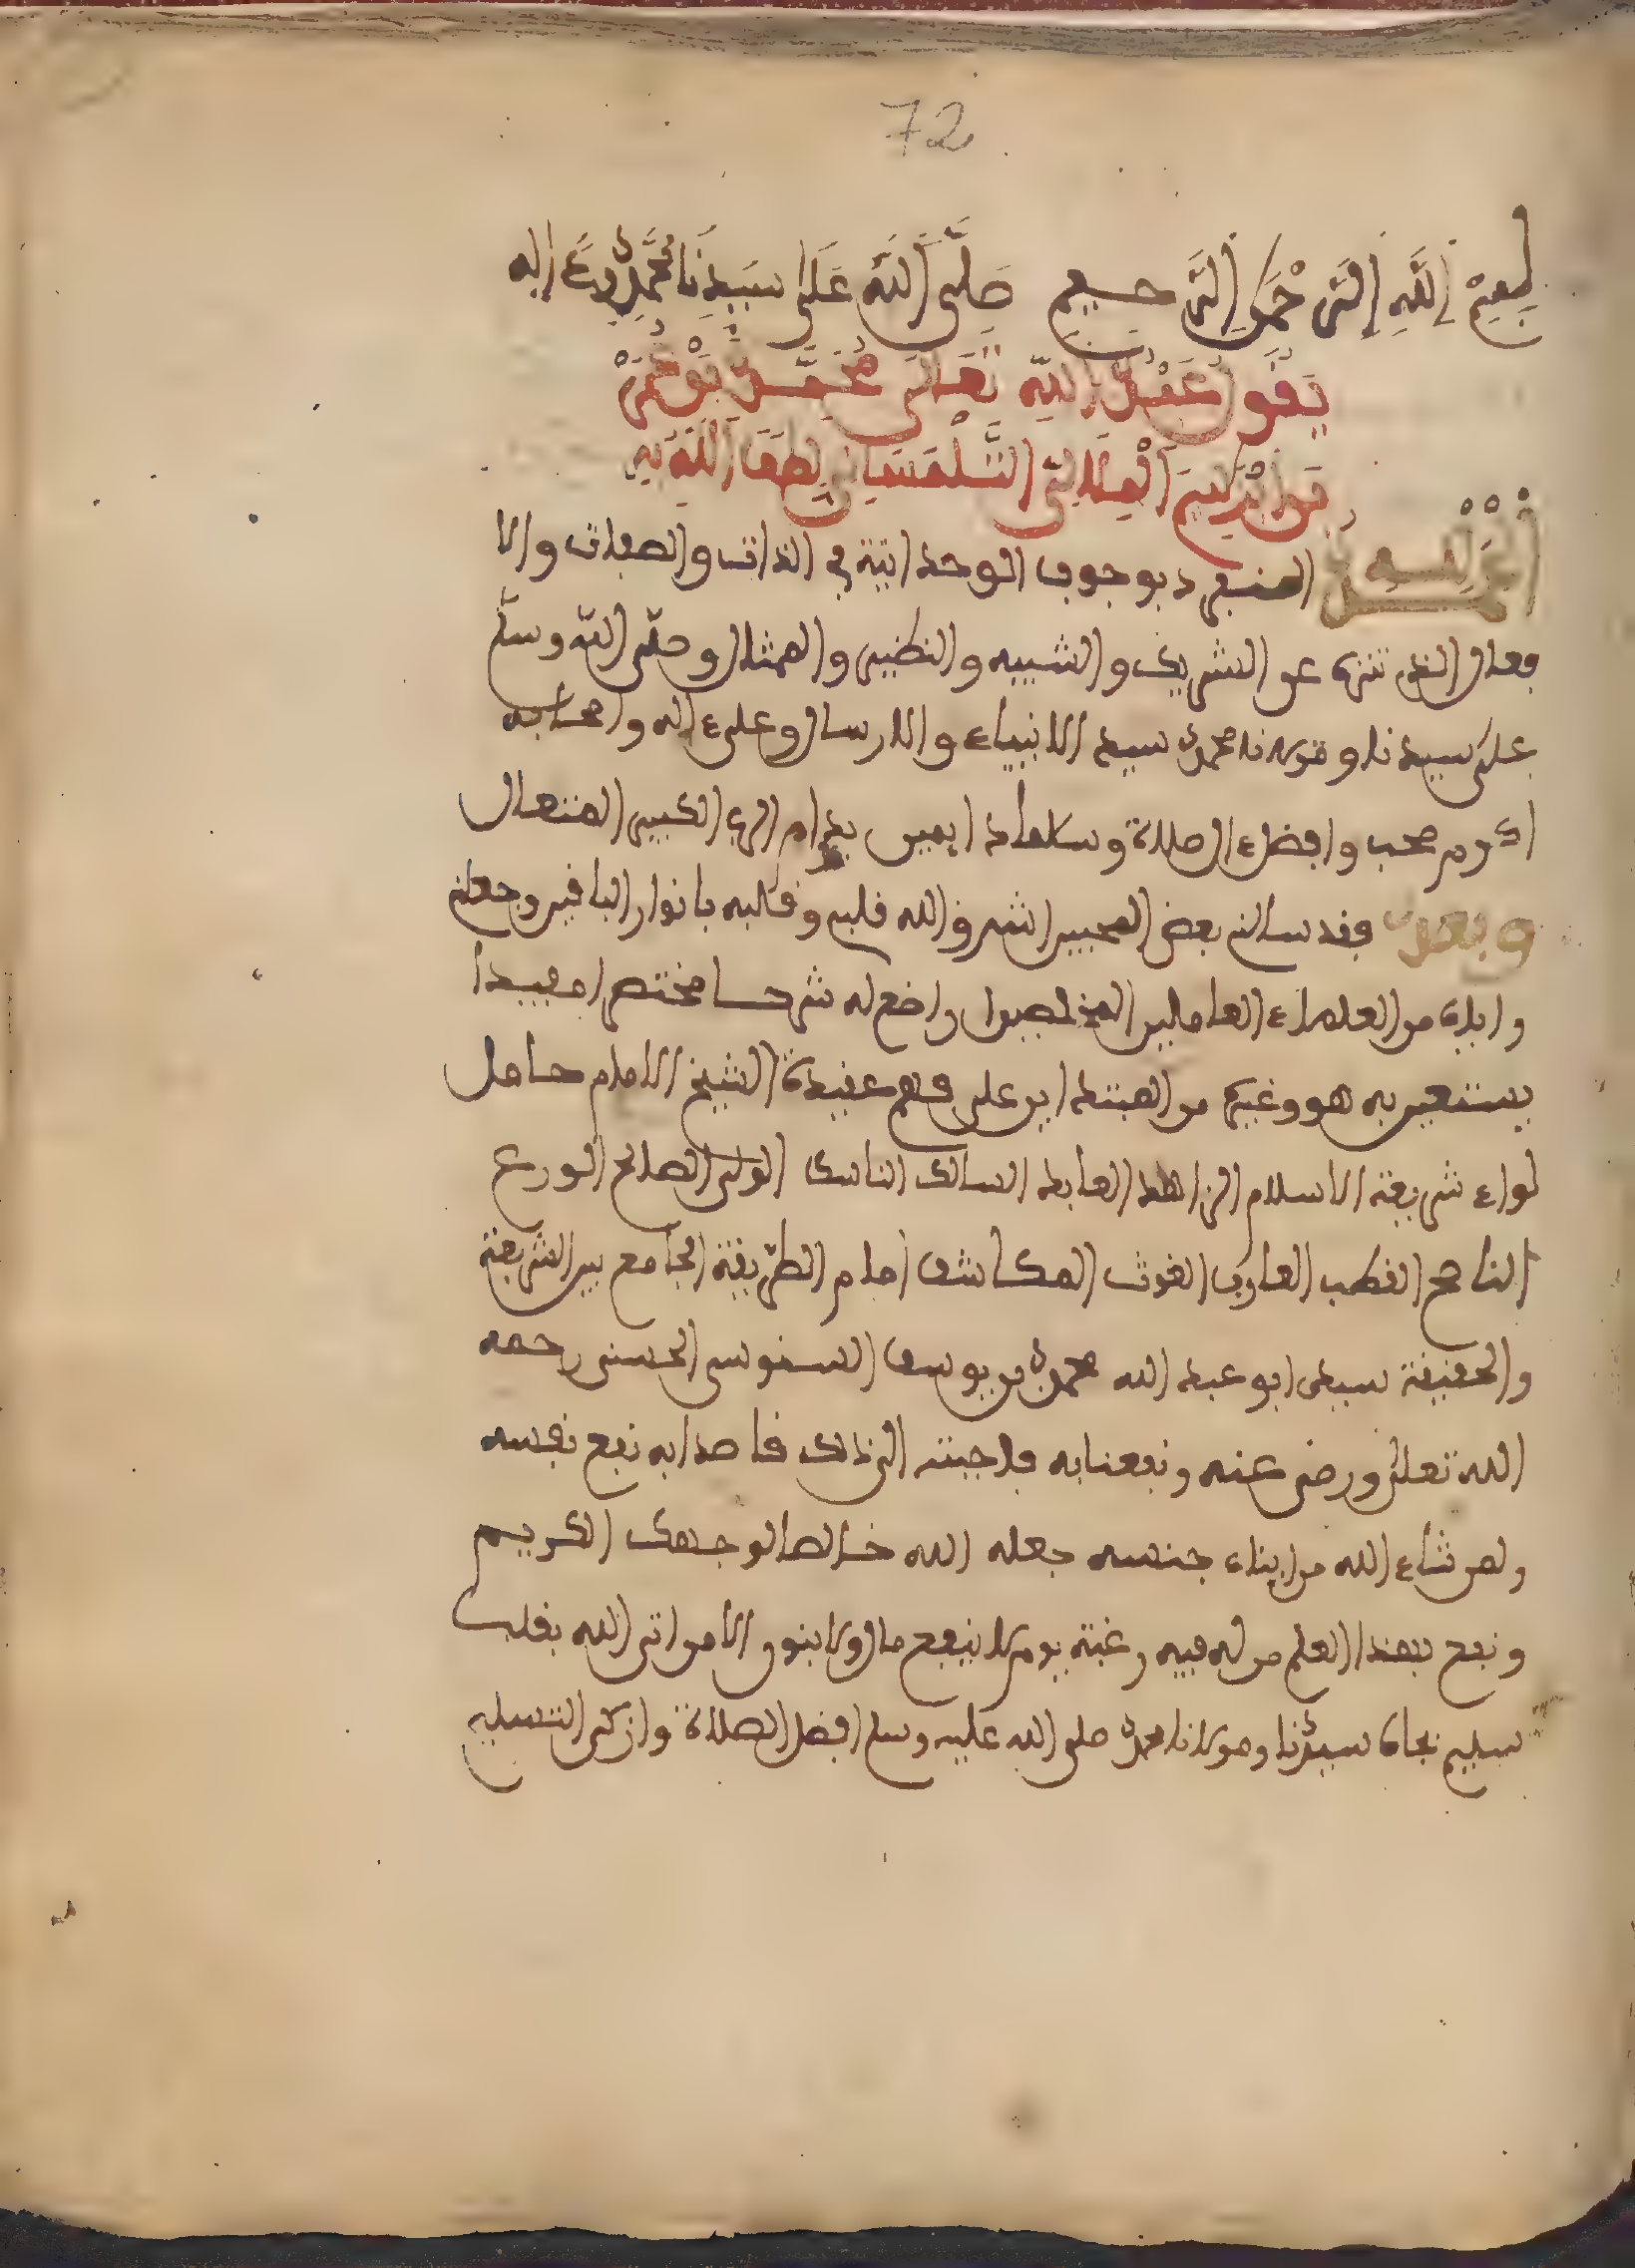 72
بسم الله الرحمن الرحيم صلى الله على سيدنا محمد وعلى اله
يقول عبد الله تعالى محمد بن عمر
بن ابراهيم الملالي التلمساني لطف الله به
الحمد لله المنفرد بوجوب الوحدانية في الذات والصفات والا
فعال الذي تنزه عن الشريك والشبيه والنظير والمثال وصلى الله وسلم
على سيدنا ومولانا محمد سيد الانبياء والارسال وعلى ءاله واصحابه
اكرم صحب وافضل ءال صلاة وسلاما دايمين بدوام الحي الكبير المتعال
وبعد فقد سالني بعض المحبين اشرق الله قلبي وقلبه بانوار اليقين وجعلني
واياه من العلماء العاملين المخلصين ان اضع له شرحا مختصرا مفيدا
يستعين به هو وغيره من المبتدايين على فهم عقيدة الشيخ الامام حامل
لواء شريعة الاسلام الزاهد العابد السالك الناسك الولي الصالح الورع
الناصح القطب العارف الغوث المكاشف امام الطريقة الجامع بين الشريعة
والحقيقة سيدي ابو عبد الله محمد بن يوسف السنوسي الحسني رحمه
الله تعالى ورضي عنه ونفعنا به فاجبته الى ذلك قاصدا به نفع نفسه
ولمن شاء الله من ابناء جنسه جعله الله خالصا لوجهك الكريم
ونفع بهذا العلم من له فيه رغبة يوم لا ينفع مال ولا بنون الا من اتى الله بقلب
سليم بجاه سيدنا ومولانا محمد صلى الله عليه وسلم افضل الصلاة وازكى التسليم